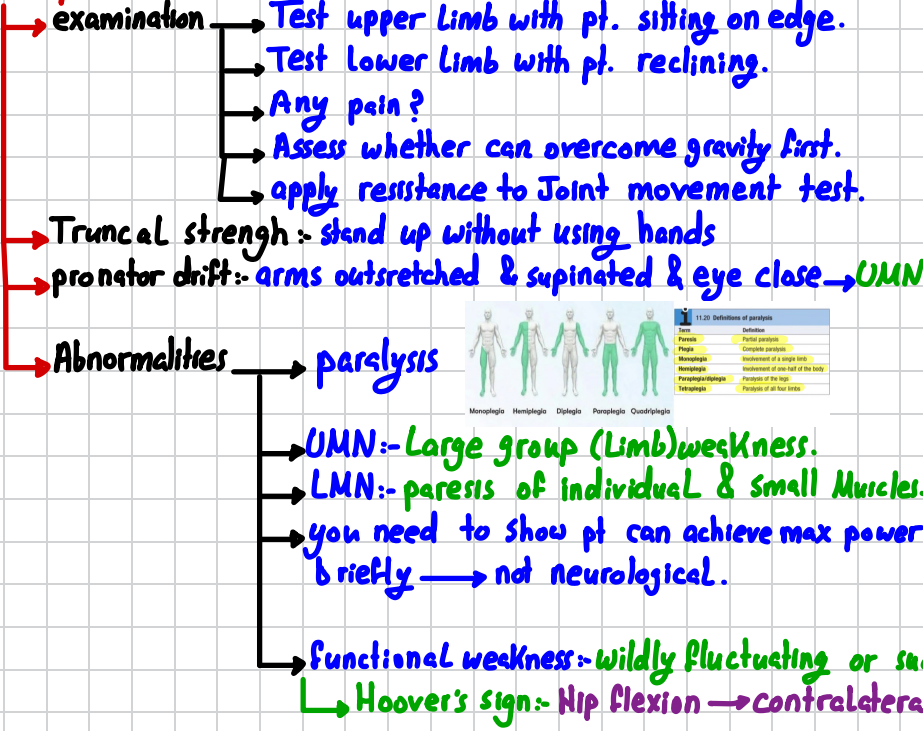 examination → Test upper limb with pt. sitting on edge.
→ Test lower limb with pt. reclining.
→ Any pain?
→ Assess whether can overcome gravity first.
→ apply resistance to Joint movement test.
Truncal strengh :- stand up without using hands
pronator drift:- arms outsretched & supinated & eye close → UMN
Abnormalities → paralysis
Monoplegia Hemiplegia Diplegia Paraplegia Quadriplegia
i 11.20 Definitions of paralysis
Term Definition
Paresis Partial paralysis
Plegia Complete paralysis
Monoplegia Involvement of a single limb
Hemiplegia Involvement of one-half of the body
Paraplegia/diplegia Paralysis of the legs
Tetraplegia Paralysis of all four limbs
→ UMN:- Large group (Limb) weakness.
→ LMN:- paresis of individual & small Muscles.
→ you need to show pt can achieve max power
briefly → not neurological.
→ functional weakness:- wildly fluctuating or su
→ Hoover's sign:- Hip flexion → contralatera